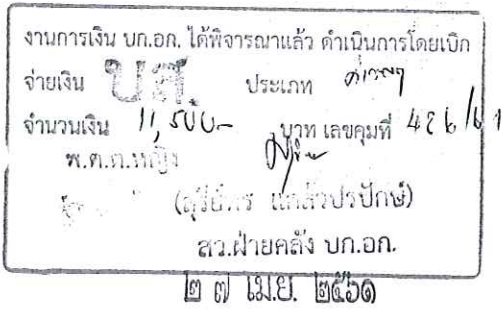 งานการเงิน บก.อก. ได้พิจารณาแล้ว ดำเนินการโดยเบิก
จ่ายเงิน บส ประเภท
จำนวนเงิน 11,500- บาท เลขคุมที่ 426/61
พ.ต.ต.หญิง
สว.ฝ่ายคลัง บก.อก.
๒๗ เม.ย. ๒๕๖๑